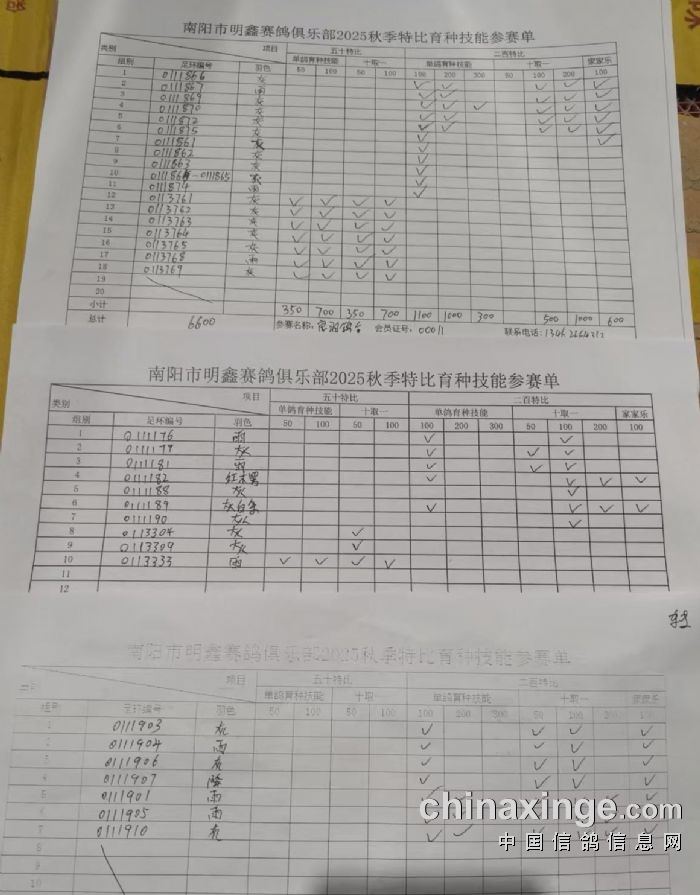 南阳市明鑫赛鸽俱乐部2025秋季特比育种技能参赛单
类别 项目 五十特比 二百特比
组别 足环编号 羽色 单鸽育种技能 十取一 单鸽育种技能 十取一 家家乐
50 100 50 100 100 200 300 50 100 200 100
1 0111866 灰 ✓ ✓ ✓ ✓ ✓
2 0111867 雨
3 0111869 灰
4 0111870 灰
5 0111872 灰
6 0111875 灰
7 0111861
8 0111862 灰
9 0111863 灰
10 -0111865
11 0111874 雨
12 0113761 灰 ✓ ✓ ✓ ✓
13 0113762 灰 ✓ ✓ ✓ ✓
14 0113763 灰 ✓ ✓ ✓ ✓
15 0113764 灰 ✓ ✓ ✓ ✓
16 0113765 灰 ✓ ✓ ✓ ✓
17 0113768 雨 ✓ ✓ ✓ ✓
18 0113769 灰 ✓ ✓ ✓ ✓
19
20
小计 350 700 350 700 1100 1000 300 500 1000 600
总计 6600 参赛名称: 会员证号: 00011 联系电话:
南阳市明鑫赛鸽俱乐部2025秋季特比育种技能参赛单
类别 项目 五十特比 二百特比
组别 足环编号 羽色 单鸽育种技能 十取一 单鸽育种技能 十取一 家家乐
50 100 50 100 100 200 300 50 100 200 100
1 0111176 雨 ✓ ✓
2 0111179 灰 ✓ ✓ ✓
3 0111181 雨 ✓ ✓ ✓
4 0111182 ✓ ✓ ✓ ✓
5 0111188 灰 ✓
6 0111189 灰白条 ✓ ✓ ✓ ✓
7 0111190 灰 ✓
8 0113304 灰 ✓
9 0113309 灰 ✓
10 0113333 雨 ✓ ✓ ✓ ✓
11
12
南阳市明鑫赛鸽俱乐部2025秋季特比育种技能参赛单
项目 五十特比 二百特比
组号 足环编号 羽色 单鸽育种技能 十取一 单鸽育种技能 十取一 家家乐
50 100 50 100 100 200 300 50 100 200 100
1 0111903 灰 ✓ ✓ ✓ ✓
2 0111904 雨 ✓ ✓ ✓ ✓
3 0111906 灰 ✓ ✓ ✓ ✓
4 0111907 ✓ ✓ ✓ ✓
5 0111901 雨
6 0111905 雨
7 0111910 灰
8
9
10
chinaxinge.com
中国信鸽信息网